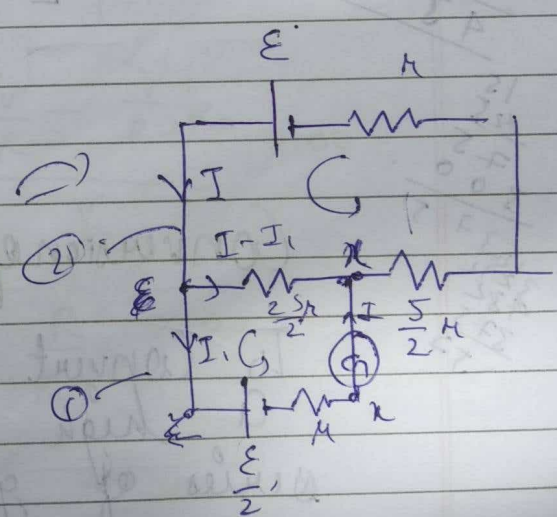 ε
r
I
I - I₁
x
②
ε
25r/2
I
5/2 r
I₁
G
①
ε
r
x
ε/2